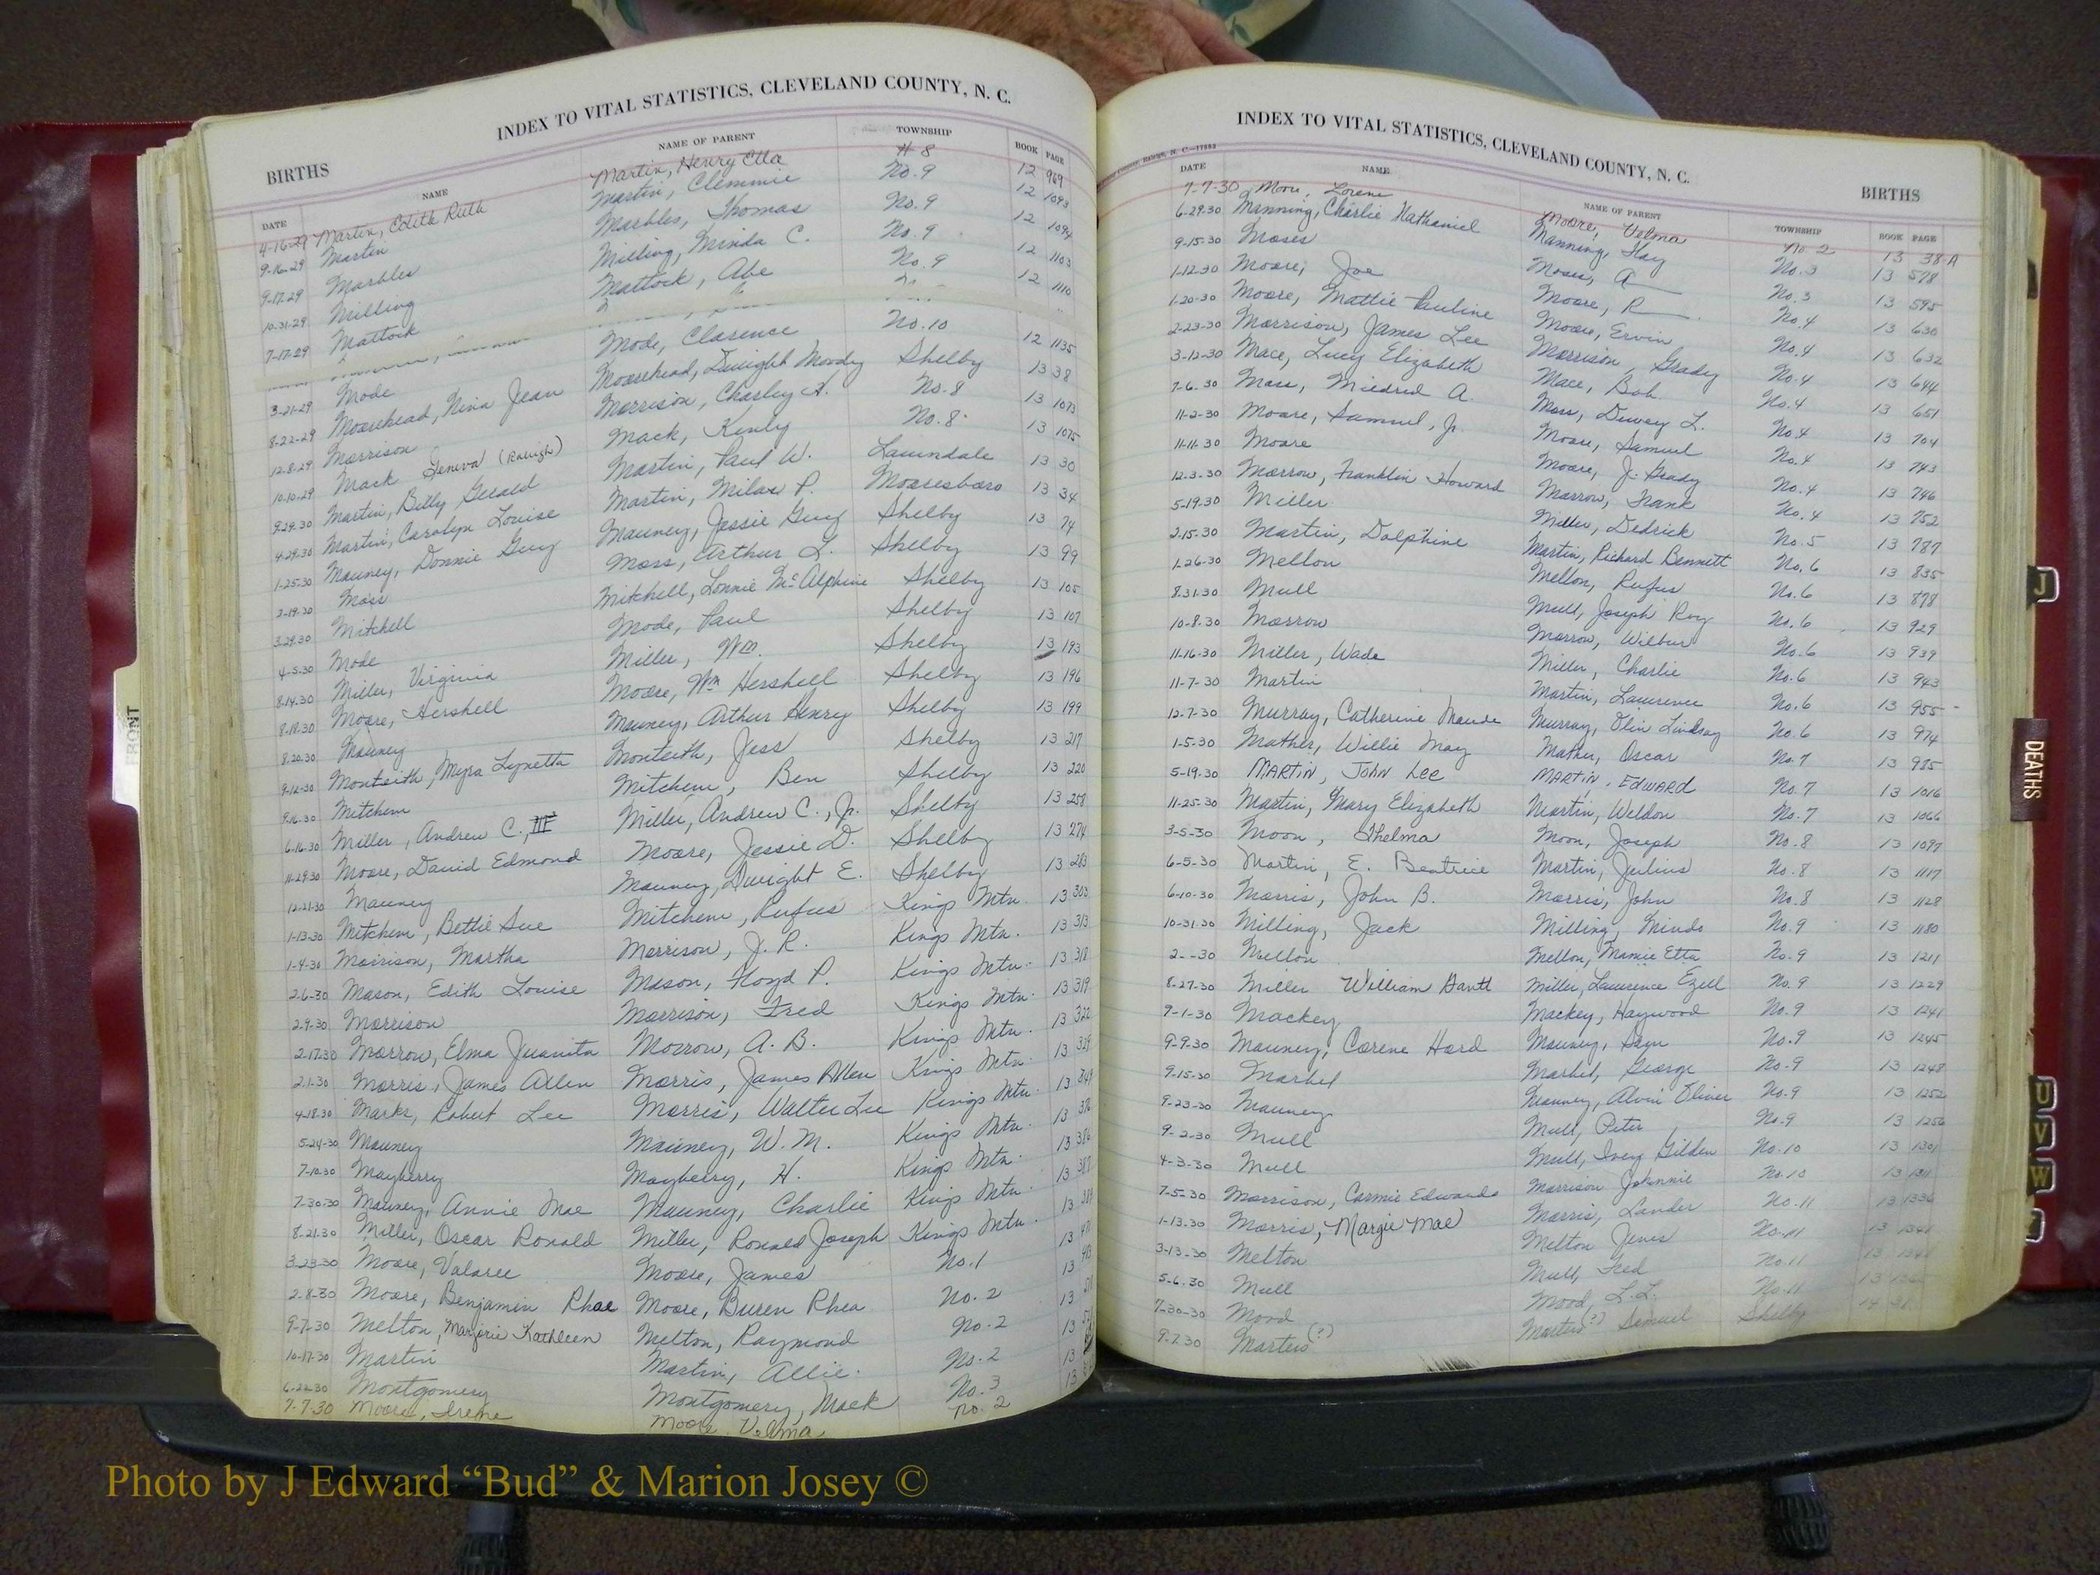 INDEX TO VITAL STATISTICS, CLEVELAND COUNTY, N. C.
BIRTHS
DATE NAME NAME OF PARENT TOWNSHIP BOOK PAGE
4-16-29 Martin, Edith Ruth Martin, Henry Etta # 8 12 969
9-16-29 Martin Martin, Clemmie No. 9 12 1093
9-17-29 Marbles Marbles, Thomas No. 9 12 1094
10-31-29 Milling Milling, Minda C. No. 9 12 1103
7-17-29 Mattock Mattock, Abe No. 9 12 1110
3-21-29 Mode Mode, Clarence No. 10 12 1135
8-22-29 Moorehead, Nina Jean Moorehead, Dwight Moody Shelby 13 38
12-8-29 Morrison Morrison, Charley A. No. 8 13 1073
10-10-29 Mack Geneva (Raleigh) Mack, Kenly No. 8 13 1075
9-29-30 Martin, Billy Gerald Martin, Paul W. Lawndale 13 30
4-29-30 Martin, Carolyn Louise Martin, Milan P. Mooresboro 13 34
1-25-30 Mauney, Donnie Guy Mauney, Jessie Guy Shelby 13 74
3-19-30 Moss Moss, Arthur L. Shelby 13 99
3-29-30 Mitchell Mitchell, Lonnie McAlphine Shelby 13 105
4-5-30 Mode Mode, Paul Shelby 13 107
8-14-30 Miller, Virginia Miller, Wm. Shelby 13 193
8-18-30 Moore, Hershell Moore, Wm Hershell Shelby 13 196
8-20-30 Mauney Mauney, Arthur Henry Shelby 13 199
9-12-30 Monteith, Myra Lynetta Monteith, Jess Shelby 13 217
9-16-30 Mitchem Mitchem, Ben Shelby 13 220
6-16-30 Miller, Andrew C., III Miller, Andrew C., Jr. Shelby 13 258
11-29-30 Moore, David Edmond Moore, Jessie D. Shelby 13 274
12-21-30 Mauney Mauney, Dwight E. Shelby 13 283
1-13-30 Mitchem, Bettie Sue Mitchem, Rufus Kings Mtn. 13 303
1-4-30 Morrison, Martha Morrison, J. R. Kings Mtn. 13 313
2-6-30 Mason, Edith Louise Mason, Floyd P. Kings Mtn. 13 318
2-9-30 Morrison Morrison, Fred Kings Mtn. 13 319
2-17-30 Morrow, Elma Juanita Morrow, A. B. Kings Mtn. 13 322
2-1-30 Morris, James Allen Morris, James Allen Kings Mtn. 13
4-18-30 Marks, Robert Lee Morris, Walter Lee Kings Mtn. 13
5-24-30 Mauney Mauney, W. M. Kings Mtn. 13
7-10-30 Mayberry Mayberry, H. Kings Mtn. 13
7-30-30 Mauney, Annie Mae Mauney, Charlie Kings Mtn. 13
8-21-30 Miller, Oscar Ronald Miller, Ronald Joseph Kings Mtn. 13
3-23-30 Moore, Valaree Moore, James No. 1 13
2-8-30 Moore, Benjamin Rhae Moore, Buren Rhea No. 2 13
9-7-30 Melton, Marjorie Kathleen Melton, Raymond No. 2 13
10-17-30 Martin Martin, Allie. No. 2 13
6-22-30 Montgomery Montgomery, Mack No. 3 13
7-7-30 Moore, Irene Moore, Velma no. 2
INDEX TO VITAL STATISTICS, CLEVELAND COUNTY, N. C.
BIRTHS
DATE NAME NAME OF PARENT TOWNSHIP BOOK PAGE
7-7-30 Moore, Lorene Moore, Velma No 2 13 38-A
6-29-30 Manning, Charlie Nathaniel Manning, Hay No. 3 13 578
9-15-30 Moses Moses, A No. 3 13 595
1-12-30 Moore, Joe Moore, R No. 4 13 630
1-20-30 Moore, Mottie Pauline Moore, Ervin No. 4 13 632
2-23-30 Morrison, James Lee Morrison, Grady No. 4 13 644
3-12-30 Mace, Lucy Elizabeth Mace, Bob No. 4 13 651
7-6-30 Moss, Mildred A. Moss, Dewey L. No. 4 13 704
11-2-30 Moore, Samuel, Jr. Moore, Samuel No. 4 13 743
11-11-30 Moore Moore, J. Grady No. 4 13 746
12-3-30 Morrow, Franklin Howard Morrow, Frank No. 4 13 752
5-19-30 Miller Miller, Dedrick No. 5 13 787
2-15-30 Martin, Dolphine Martin, Richard Bennett No. 6 13 835
1-26-30 Mellon Mellon, Rufus No. 6 13 878
8-31-30 Mull Mull, Joseph Roy No. 6 13 929
10-8-30 Morrow Morrow, Wilbur No. 6 13 939
11-16-30 Miller, Wade Miller, Charlie No. 6 13 943
11-7-30 Martin Martin, Lawrence No. 6 13 955
12-7-30 Murray, Catherine Maude Murray, Olin Lindsay No. 6 13 974
1-5-30 Mather, Willie May Mather, Oscar No. 7 13 985
5-19-30 MARTIN, John Lee MARTIN, EDWARD No. 7 13 1016
11-25-30 Martin, Mary Elizabeth Martin, Weldon No. 7 13 1066
3-5-30 Moon, Thelma Moon, Joseph No. 8 13 1097
6-5-30 Martin, E. Beatrice Martin, Julius No. 8 13 1117
6-10-30 Morris, John B. Morris, John No. 8 13 1128
10-31-30 Milling, Jack Milling, Mindo No. 9 13 1180
2- -30 Mellon Mellon, Mamie Etta No. 9 13 1211
8-27-30 Miller William Gantt Miller, Lawrence Ezell No. 9 13 1229
9-1-30 Mackey Mackey, Haywood No. 9 13 1241
9-9-30 Mauney, Corene Hord Mauney, Sam No. 9 13 1245
9-15-30 Marbel Marbel, George No. 9 13 1248
9-23-30 Mauney Mauney, Alvin Oliver No. 9 13 1252
9-2-30 Mull Mull, Peter No. 9 13 1256
4-3-30 Mull Mull, Ivey Gilden No. 10 13 1301
7-5-30 Morrison, Carmie Edwards Morrison Johnnie No. 10 13 1311
1-13-30 Morris, Margie Mae Morris, Lander No. 11 13 1336
3-13-30 Melton Melton Jenis No. 11 13 1341
5-6-30 Mull Mull, Fred No. 11 13
7-30-30 Mood Mood, L. L. No. 11
9-7-30 Marters (?) Marters (?) Samuel Shelby
FRONT
J
DEATHS
U
V
W
Photo by J Edward “Bud” & Marion Josey ©